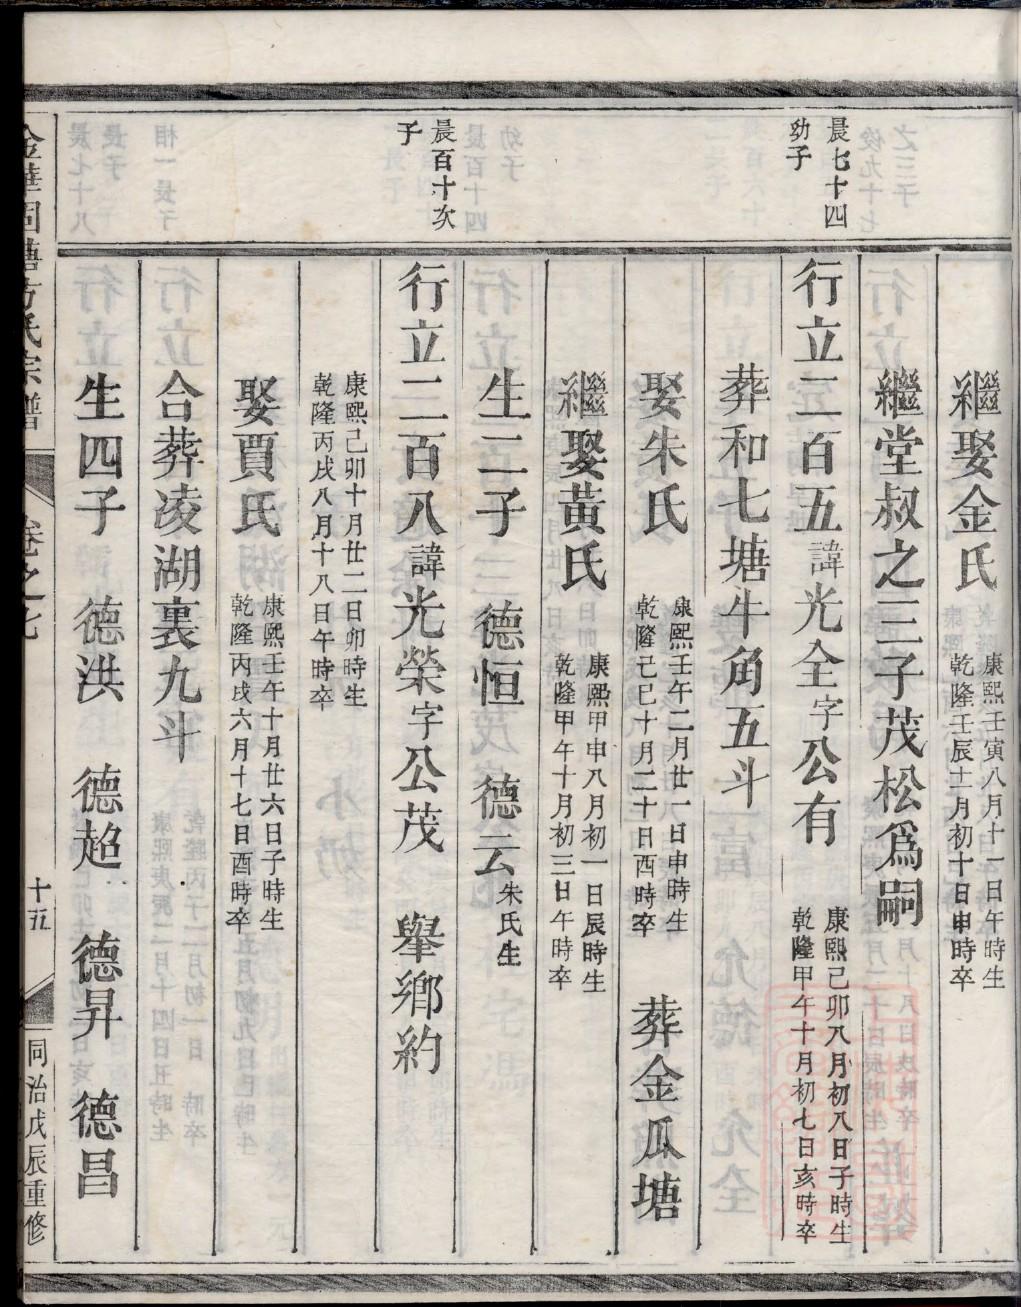 繼娶金氏
康熙壬寅八月十一日午時生
乾隆壬辰十一月初十日申時卒
繼堂叔之三子茂松爲嗣
晨七十四
幼子
行立二百五諱光全字公有
康熙己卯八月初八日子時生
乾隆甲午十月初七日亥時卒
葬和七塘牛角五斗
娶朱氏
康熙壬午二月廿一日申時生
乾隆己巳十月二十日酉時卒
葬金瓜塘
繼娶黃氏
康熙甲申八月初一日辰時生
乾隆甲午十月初三日午時卒
生二子 德恒 德云朱氏生
晨百十次
子
行立二百八諱光榮字公茂 舉鄉約
康熙己卯十月廿二日卯時生
乾隆丙戌八月十八日午時卒
娶賈氏
康熙壬午十月廿六日子時生
乾隆丙戌六月十七日酉時卒
合葬凌湖裏九斗
生四子 德洪 德趋 德昇 德昌
卷之七
十五
同治戊辰重修